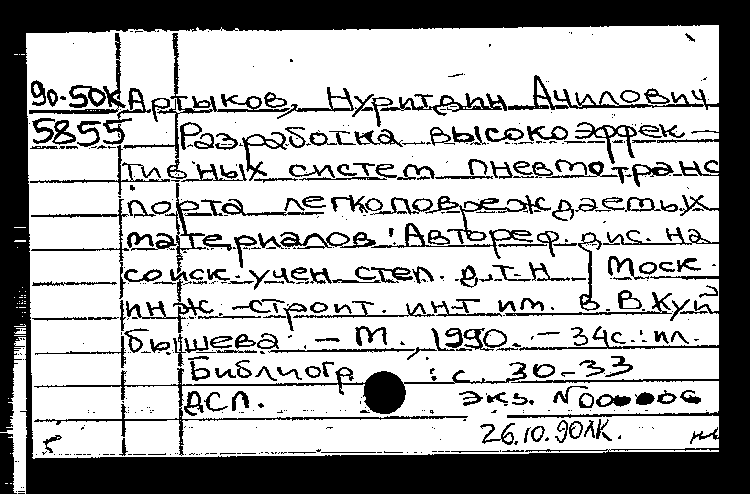 90-50К Артыков, Нуритдин Ачилович
5855 Разработка высокоэффек-
тивных систем пневмотранс
порта легкоповреждаемых
материалов: Автореф. дис. на
соиск. учен степ. д.т.н / Моск.
инж.-строит. ин-т им. В.В.Куй
бышева. - М., 1990. - 34с.: ил.
Библиогр : с. 30-33
ДСП. экз. N00
26.10.90ЛК.
5